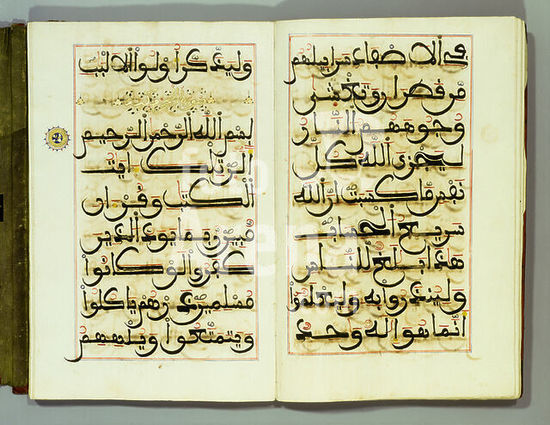 في الاصفاد سرابيلهم
من قطران وتغشى
وجوههم النار
ليجزي الله كل
نفس ما كسبت ان الله
سريع الحساب
هذا بلغ للناس
ولينذروا به وليعلموا
انما هو اله وحد
وليذكر اولوا الالبب
بسم الله الرحمن الرحيم
الر تلك ايت
الكتب وقران
مبين ربما يود الذين
كفروا لو كانوا
مسلمين ذرهم ياكلوا
ويتمتعوا ويلههم